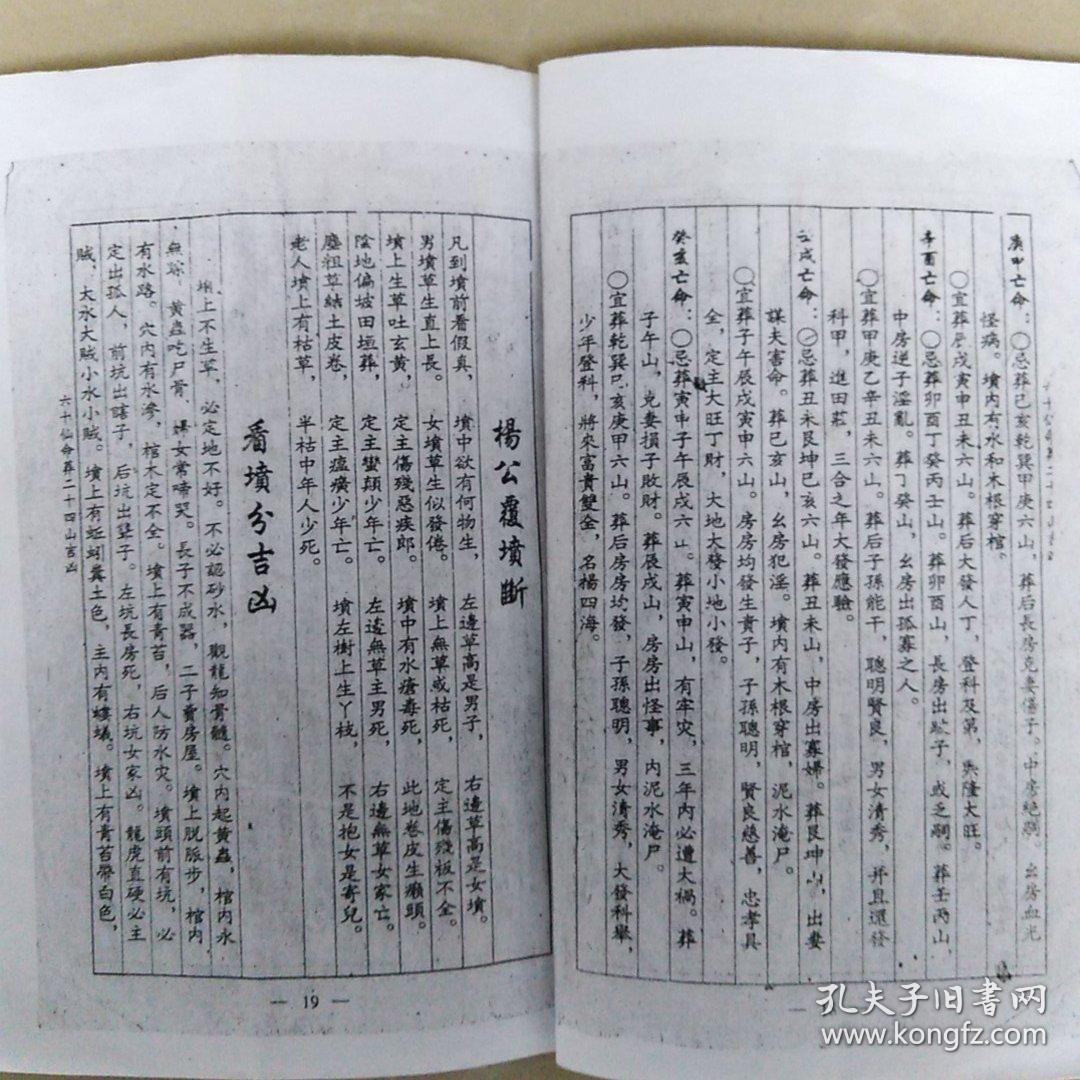 庚申亡命：〇忌葬己亥乾巽甲庚六山，葬后長房克妻傷子。中房絶嗣。幺房血光
怪病。墳内有水和木根穿棺。
〇宜葬辰戌寅申丑未六山。葬后大發人丁，登科及第，興隆大旺。
辛酉亡命：〇忌葬卯酉丁癸丙壬山。葬卯酉山，長房出子，或乏嗣。葬壬丙山，
中房逆子淫亂。葬丁癸山，幺房出孤寡之人。
〇宜葬甲庚乙辛丑未六山。葬后子孫能干，聰明賢良，男女清秀，并且還發
科甲，進田莊，三合之年大發應驗。
壬戌亡命：〇忌葬丑未艮坤巳亥六山。葬丑未山，中房出寡婦。葬艮坤山，出妻
謀夫害命。葬巳亥山，幺房犯淫。墳内有木根穿棺，泥水淹尸。
〇宜葬子午辰戌寅申六山。房房均發生貴子，子孫聰明，賢良慈善，忠孝具
全，定主大旺丁財，大地大發小地小發。
癸亥亡命：〇忌葬寅申子午辰戌六山。葬寅申山，有牢灾，三年内必遭大禍。葬
子午山，克妻損子敗財。葬辰戌山，房房出怪事，内泥水淹尸。
〇宜葬乾巽巳亥庚甲六山。葬后房房均發，子孫聰明，男女清秀，大發科舉，
少年登科，將來富貴雙全，名楊四海。
楊公覆墳斷
凡到墳前看假真，墳中欲有何物生，左邊草高是男子，右邊草高是女墳。
男墳草生直上長。女墳草生似發倦。墳上無草或枯死，定主傷殘板不全。
墳上生草吐玄黄，定主傷殘惡疾郎。墳中有水瘡毒死，此地卷皮生癩頭。
陰地偏坡田垣葬，定主蠻顛少年亡。左邊無草主男死，右邊無草女家亡。
塵粗草結土皮卷，定主瘟癀少年亡。墳左樹上生丫枝，不是抱女是寄兒。
老人墳上有枯草，半枯中年人少死。
看墳分吉凶
墳上不生草，必定地不好。不必認砂水，觀龍知骨髓。穴内起黄蟲，棺内永
無踪，黄蟲吃尸骨，婦女常啼哭。長子不成器，二子賣房屋。墳上脱脈步，棺内
有水路。穴内有水滲，棺木定不全。墳上有青苔，后人防水灾。墳頭前有坑，必
定出孤人，前坑出瞎子，后坑出聾子。左坑長房死，右坑女家凶。龍虎直硬必主
賊，大水大賊小水小賊。墳上有蚯蚓糞土色，主内有螻蟻。墳上有青苔帶白色，
六十仙命葬二十四山吉凶
— 19 —
孔夫子旧書网
www.kongfz.com